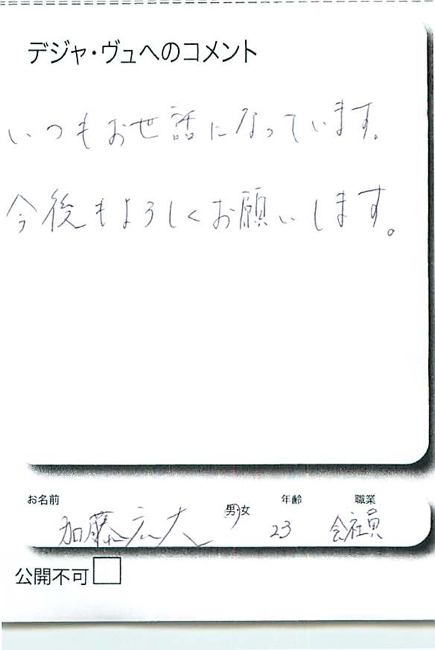 デジャ・ヴュへのコメント
いつもお世話になっています。
今後もよろしくお願いします。
お名前 男女 年齢 職業
加藤広大 23 会社員
公開不可